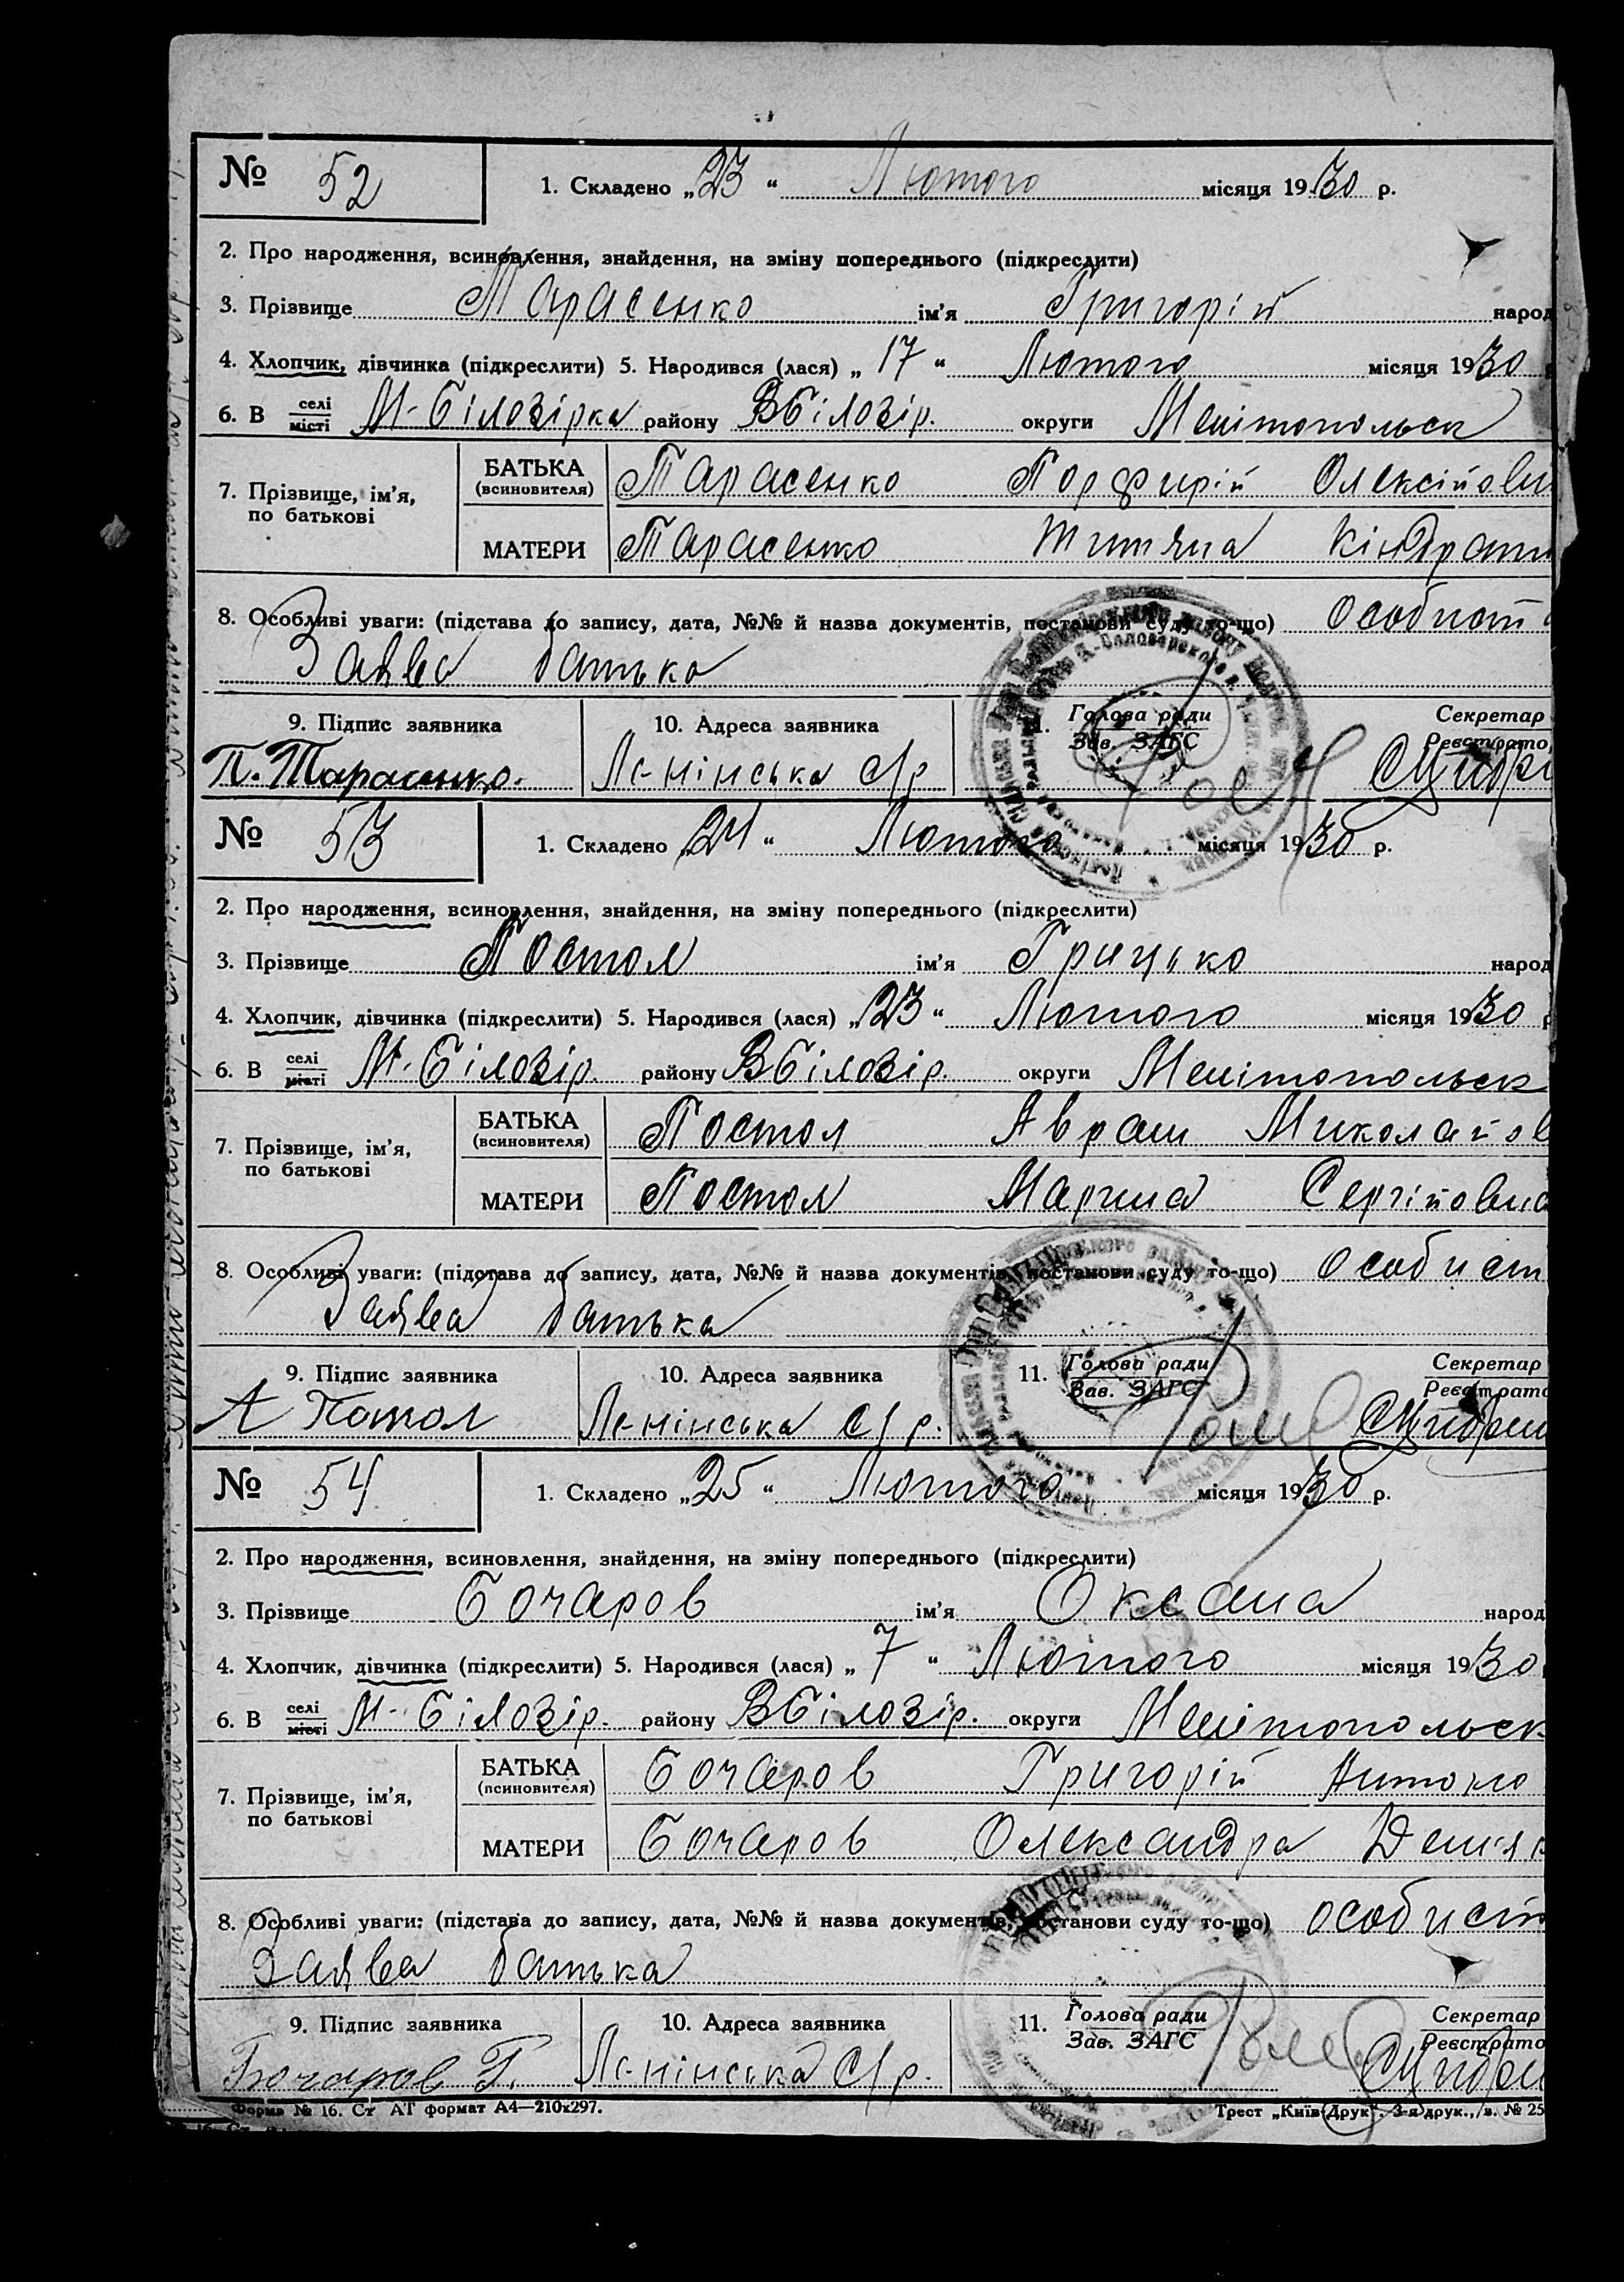 № 52 1. Складено „23“ Лютого місяця 1930 р.
2. Про народження, всиновлення, знайдення, на зміну попереднього (підкреслити)
3. Прізвище Тарасенко ім'я Григорій народ
4. Хлопчик, дівчинка (підкреслити) 5. Народився (лася) „17“ Лютого місяця 1930
6. В селі місті М-Білозірка району ВБілозір. округи Мелітопольск
7. Прізвище, ім'я, по батькові
БАТЬКА (всиновителя) Тарасенко Порфирій Олексійови
МАТЕРИ Тарасенко Титяна Кіндрати
8. Особливі уваги: (підстава до запису, дата, №№ й назва документів, постанови суду то-що) Особист
Заява батька
9. Підпис заявника 10. Адреса заявника 11. Голова ради Зав. ЗАГС Секретар Реєстрато
П. Тарасенко. Ленінська С/р
№ 53 1. Складено „24“ Лютого місяця 1930 р.
2. Про народження, всиновлення, знайдення, на зміну попереднього (підкреслити)
3. Прізвище Постол ім'я Грицько народ
4. Хлопчик, дівчинка (підкреслити) 5. Народився (лася) „23“ Лютого місяця 1930
6. В селі місті М-Білозір. району ВБілозір. округи Мелітопольск
7. Прізвище, ім'я, по батькові
БАТЬКА (всиновителя) Постол Аврам Миколайов
МАТЕРИ Постол Марина Сергійовна
8. Особливі уваги: (підстава до запису, дата, №№ й назва документів, постанови суду то-що) Особист
Заява батька
9. Підпис заявника 10. Адреса заявника 11. Голова ради Зав. ЗАГС Секретар Реєстрато
А Постол Ленінська С/р.
№ 54 1. Складено „25“ Лютого місяця 1930 р.
2. Про народження, всиновлення, знайдення, на зміну попереднього (підкреслити)
3. Прізвище Бочаров ім'я Оксана народ
4. Хлопчик, дівчинка (підкреслити) 5. Народився (лася) „7“ Лютого місяця 1930
6. В селі місті М-Білозір. району ВБілозір. округи Мелітопольск
7. Прізвище, ім'я, по батькові
БАТЬКА (всиновителя) Бочаров Григорій
МАТЕРИ Бочаров Олександра Дем'ян
8. Особливі уваги: (підстава до запису, дата, №№ й назва документів, постанови суду то-що) особист
Заява батька
9. Підпис заявника 10. Адреса заявника 11. Голова ради Зав. ЗАГС Секретар Реєстрато
Бочаров Г. Ленінська С/р.
Форма № 16. Ст АТ формат А4—210х297. Трест „Київ-Друк“. 3-я друк., з. № 25